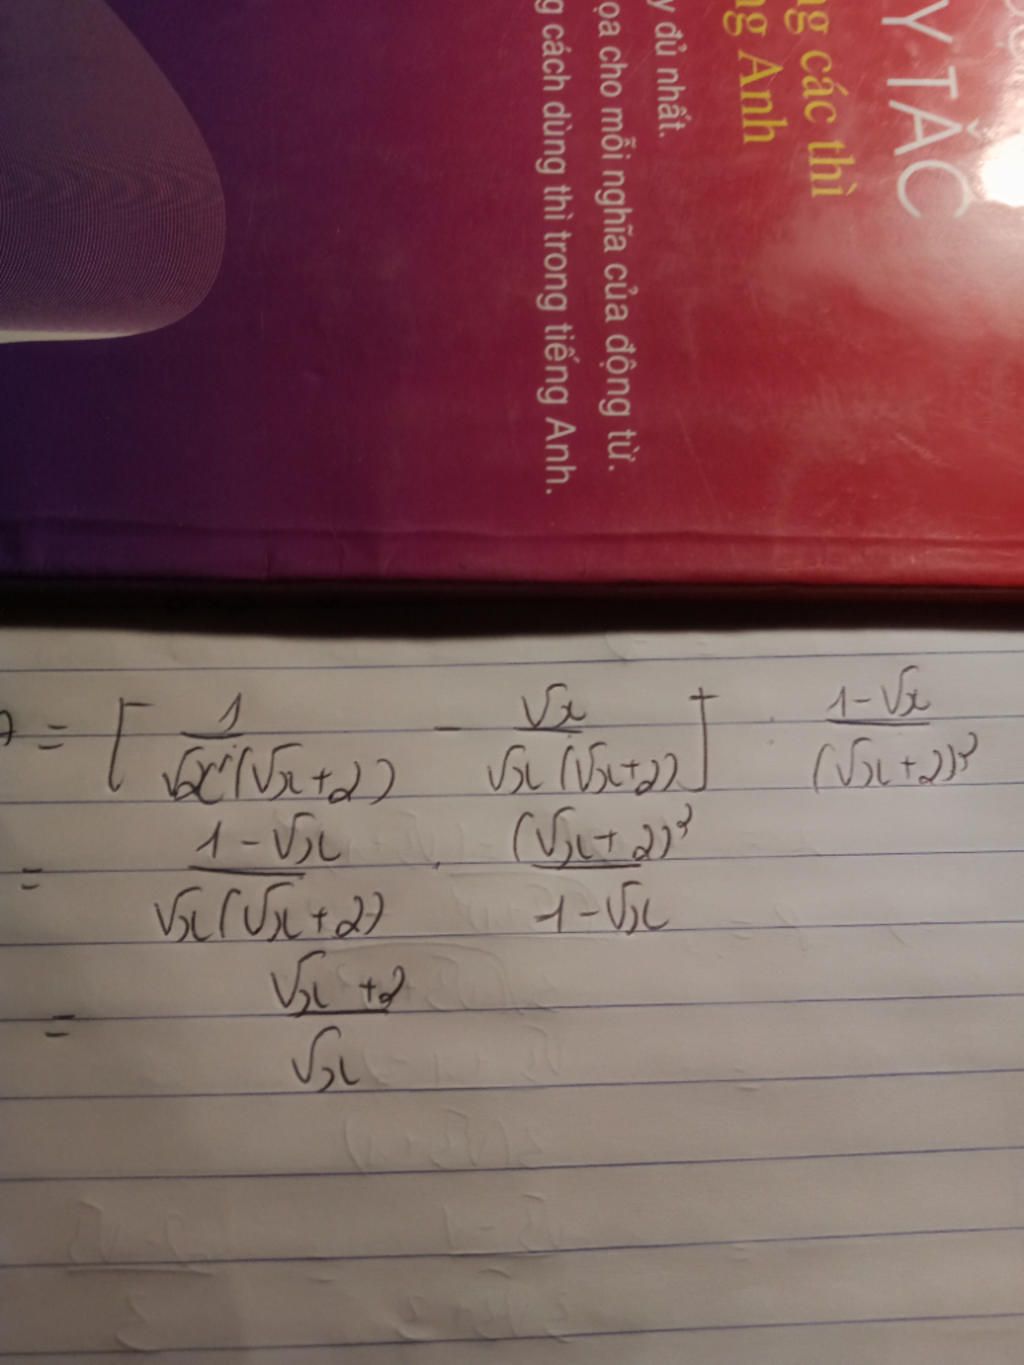 Y TẮC
ng các thì
ng Anh
y đủ nhất.
ọa cho mỗi nghĩa của động từ.
g cách dùng thì trong tiếng Anh.
A = [ 1/(√x(√x+2)) - √x/(√x(√x+2)) ] : (1-√x)/(√x+2)²
= (1-√x)/(√x(√x+2)) . (√x+2)²/(1-√x)
= (√x+2)/√x